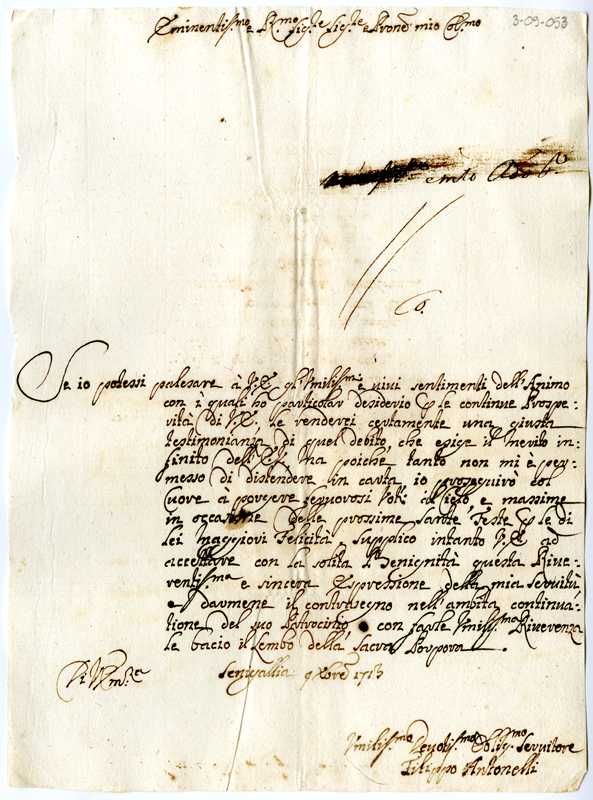 3-09-053
Eminentis.mo e R.mo Sig.re Sig.re e Prone mio Col.mo
Se io potessi palesare à V.E. gl'Umiliss.mi e vivi sentimenti dell'Animo
con i quali hò particolar desiderio p le continue Prospe-
rità di V.E. le renderei certamente una giusta
testimonianza di quel debito, che esige il merito in-
finito dell'E.V. Ma poiche tanto non mi è per-
messo di distendere in carta, io proseguirò col
Cuore à porgere fervorosi Voti al Cielo, e massime
in occasione delle prossime Sante Feste p le di
lei maggiori Felicità. Supplico intanto V.E. ad
accettare con la solita Benignità questa Rive-
rentiss.ma e sincera Espressione della mia servitù
e darmene il contrasegno nell'ambita continua-
tione del suo Patrocinio, e con farle Umiliss.ma Riverenza
le bacio il lembo della Sacra Porpora.
Di V. Em.za
Senigallia 9 Xbre 1713
Umiliss.mo Devotis.mo Oblig.mo Servitore
Filippo Antonelli